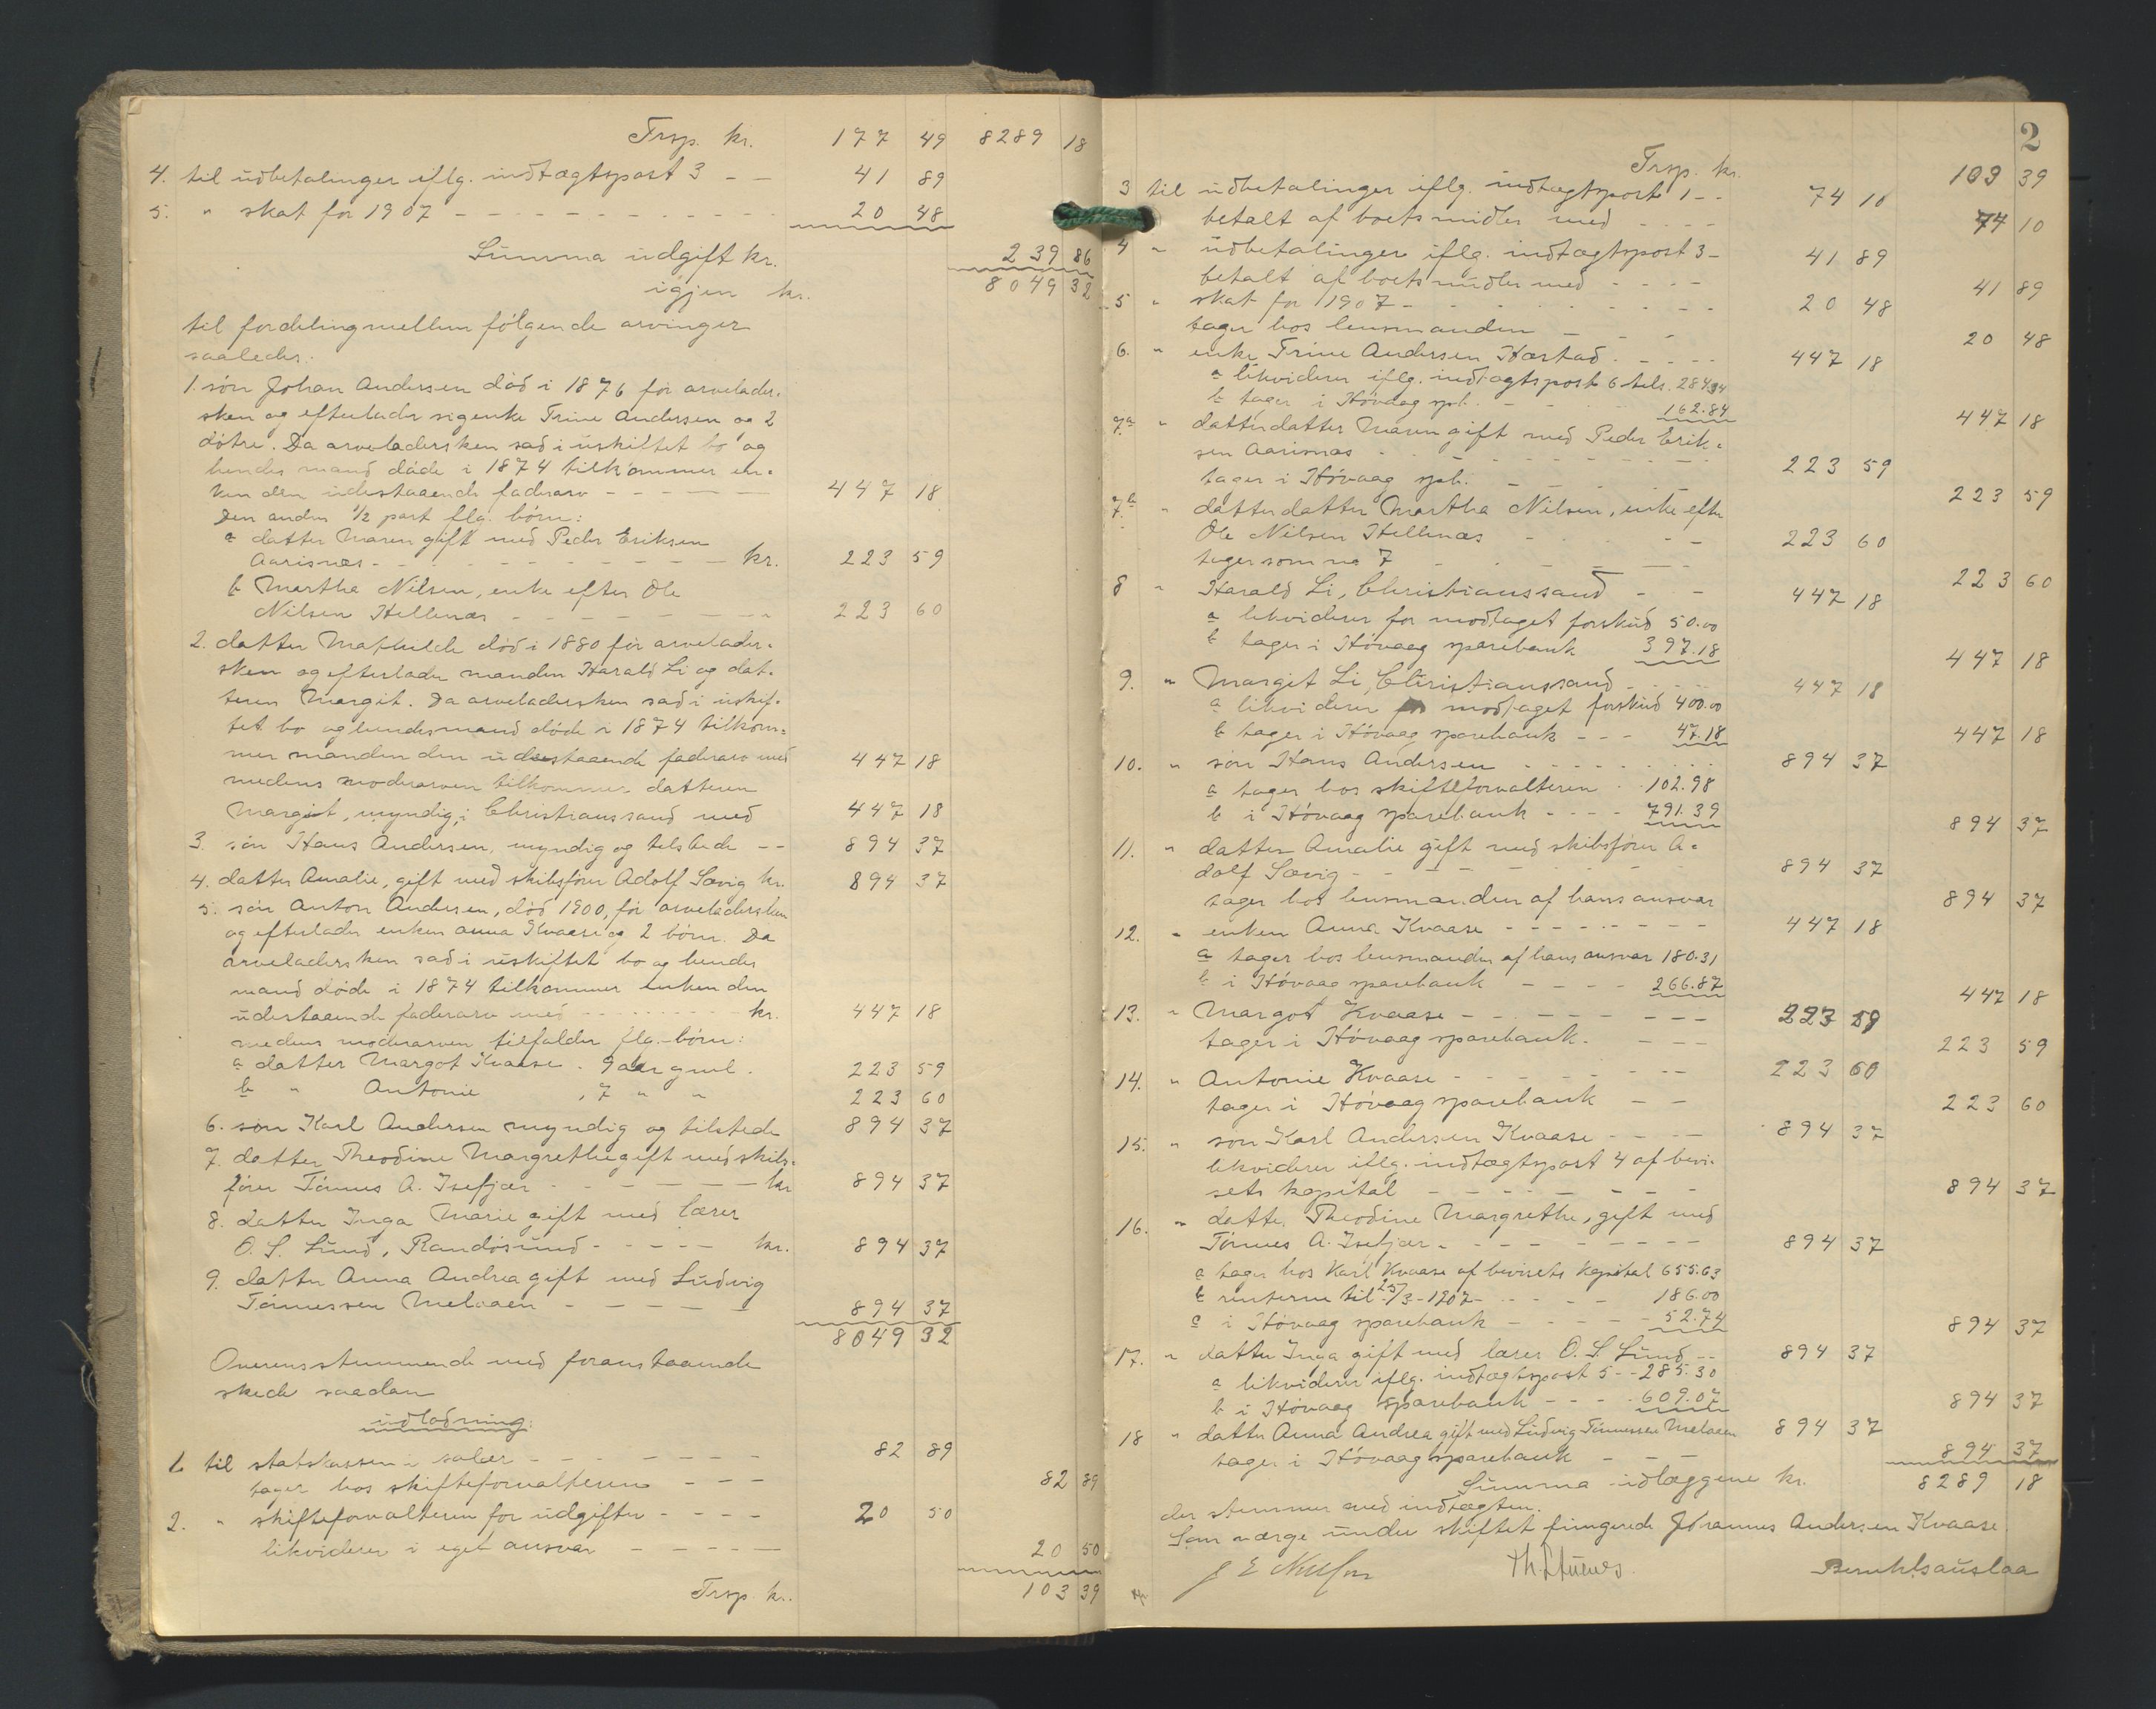 Trsp. kr. 177 49 8289 18
4. til udbetalinger iflg. indtægtspost 3 - - 41 89
5. " skat for 1907 - - - - - - - - 20 48
Summa udgift kr. 239 86
igjen kr. 8049 32
til fordeling mellem følgende arvinger
saaledes:
1. søn Johan Andersen død i 1876 før arvelader-
sken og efterlader sig enke Trine Andersen og 2
døtre. Da arveladersken sad i uskiftet bo og
hendes mand døde i 1874 tilkommer en-
ken den udestaaende fadrearv - - - - 447 18
Den anden 1/2 part flg. børn:
a datter Maren gift med Peder Eriksen
Aarisnæs - - - - - - - - kr. 223 59
b Martha Nilsen, enke efter Ole
Nilsen Hellenæs - - - - - - 223 60
2. datter Mathilde død i 1880 før arvelader-
sken og efterlader manden Harald Li og dat-
teren Margit. Da arveladersken sad i uskif-
tet bo og hendes mand døde i 1874 tilkom-
mer manden den udestaaende fadrearv med 447 18
medens modrearven tilkommer datteren
Margit, myndig, i Christianssand med 447 18
3. søn Hans Andersen, myndig og tilstede - - 894 37
4. datter Amalie, gift med skibsfører Adolf Sævig kr. 894 37
5. søn Anton Andersen, død 1900, før arveladersken
og efterlader enken Anna Kvaase og 2 børn. Da
arveladersken sad i uskiftet bo og hendes
mand døde i 1874 tilkommer enken den
udestaaende fadrearv med - - - - - kr. 447 18
medens modrearven tilfalder flg. børn:
a datter Margot Kvaase. 9 aar gml. 223 59
b " Antonie , 7 " " 223 60
6. søn Karl Andersen myndig og tilstede 894 37
7. datter Theodine Margrethe gift med skibs-
fører Tønnes A. Isefjær - - - - - - kr 894 37
8. datter Inga Marie gift med lærer
O. S. Lund, Randøsund - - - - - kr. 894 37
9. datter Anna Andrea gift med Ludvig
Tønnessen Melaaen - - - - - 894 37
8049 32
Overensstemmende med foranstaaende
skede saadan
udlodning:
1. til statskassen i salær - - - - - - 82 89
tager hos skifteforvalteren - - - 82 89
2. " skifteforvalteren for udgifter - - - - 20 50
likviderer i eget ansvar - - - - - 20 50
Trsp. kr. 103 39
2
Trsp. kr. 103 39
3 til udbetalinger iflg. indtægtspost 1 - - 74 10
betalt af boets midler med - - - - 74 10
4 " udbetalinger iflg. indtægtspost 3 - 41 89
betalt af boets midler med - - - - 41 89
5 " skat for 1907 - - - - - - - - 20 48
tager hos lensmanden - - 20 48
6. " enke Trine Andersen Hæstad - - - - 447 18
a likviderer iflg. indtægtspost 6 tils. 284.34
b tager i Høvaag spb. - - - 162.84 447 18
7a " datterdatter Maren gift med Peder Erik-
sen Aarisnæs - - - - - - - 223 59
tager i Høvaag spb. - - - 223 59
7b " datterdatter Martha Nilsen, enke efter
Ole Nilsen Hellenæs - - - 223 60
tager som no 7 - - - - - 223 60
8 " Harald Li, Christianssand - - 447 18
a likviderer for modtaget forskud 50.00
b tager i Høvaag sparebank 397.18 447 18
9. " Margit Li, Christianssand - - - - 447 18
a likviderer for modtaget forskud 400.00
b tager i Høvaag sparebank - - - 47.18 447 18
10. " søn Hans Andersen - - - - - - - 894 37
a tager hos skifteforvalteren - 102.98
b i Høvaag sparebank - - - - 791.39 894 37
11. " datter Amalie gift med skibsfører A-
dolf Sævig - - - - - - - - 894 37
tager hos lensmanden af hans ansvar 894 37
12. " enken Anna Kvaase - - - - - - - - 447 18
a tager hos lensmanden af hans ansvar 180.31
b i Høvaag sparebank - - - - 266.87 447 18
13. " Margot Kvaase - - - - - - - - - 223 59
tager i Høvaag sparebank. - - - 223 59
14. " Antonie Kvaase - - - - - - - - 223 60
tager i Høvaag sparebank - - 223 60
15. " søn Karl Andersen Kvaase - - - - 894 37
likviderer iflg. indtægtspost 4 af bevi-
sets kapital - - - - - - - 894 37
16. " datter Theodine Margrethe, gift med
Tønnes A. Isefjær - - - - - - - - - 894 37
a tager hos Karl Kvaase af bevisets kapital 655.63
b renterne til 25/3-1907 - - - - - 186.00
c i Høvaag sparebank - - - - - 52.74 894 37
17. " datter Inga gift med lærer O. S. Lund - - 894 37
a likviderer iflg. indtægtspost 5 - - 285.30
b i Høvaag sparebank - - - - 609.07 894 37
18 " datter Anna Andrea gift med Ludvig Tønnessen Melaaen 894 37
tager i Høvaag sparebank - - - 894 37
Summa udlæggene kr. 8289 18
der stemmer med indtægten.
Som værge under skiftet fungerede Johannes Andersen Kvaase.